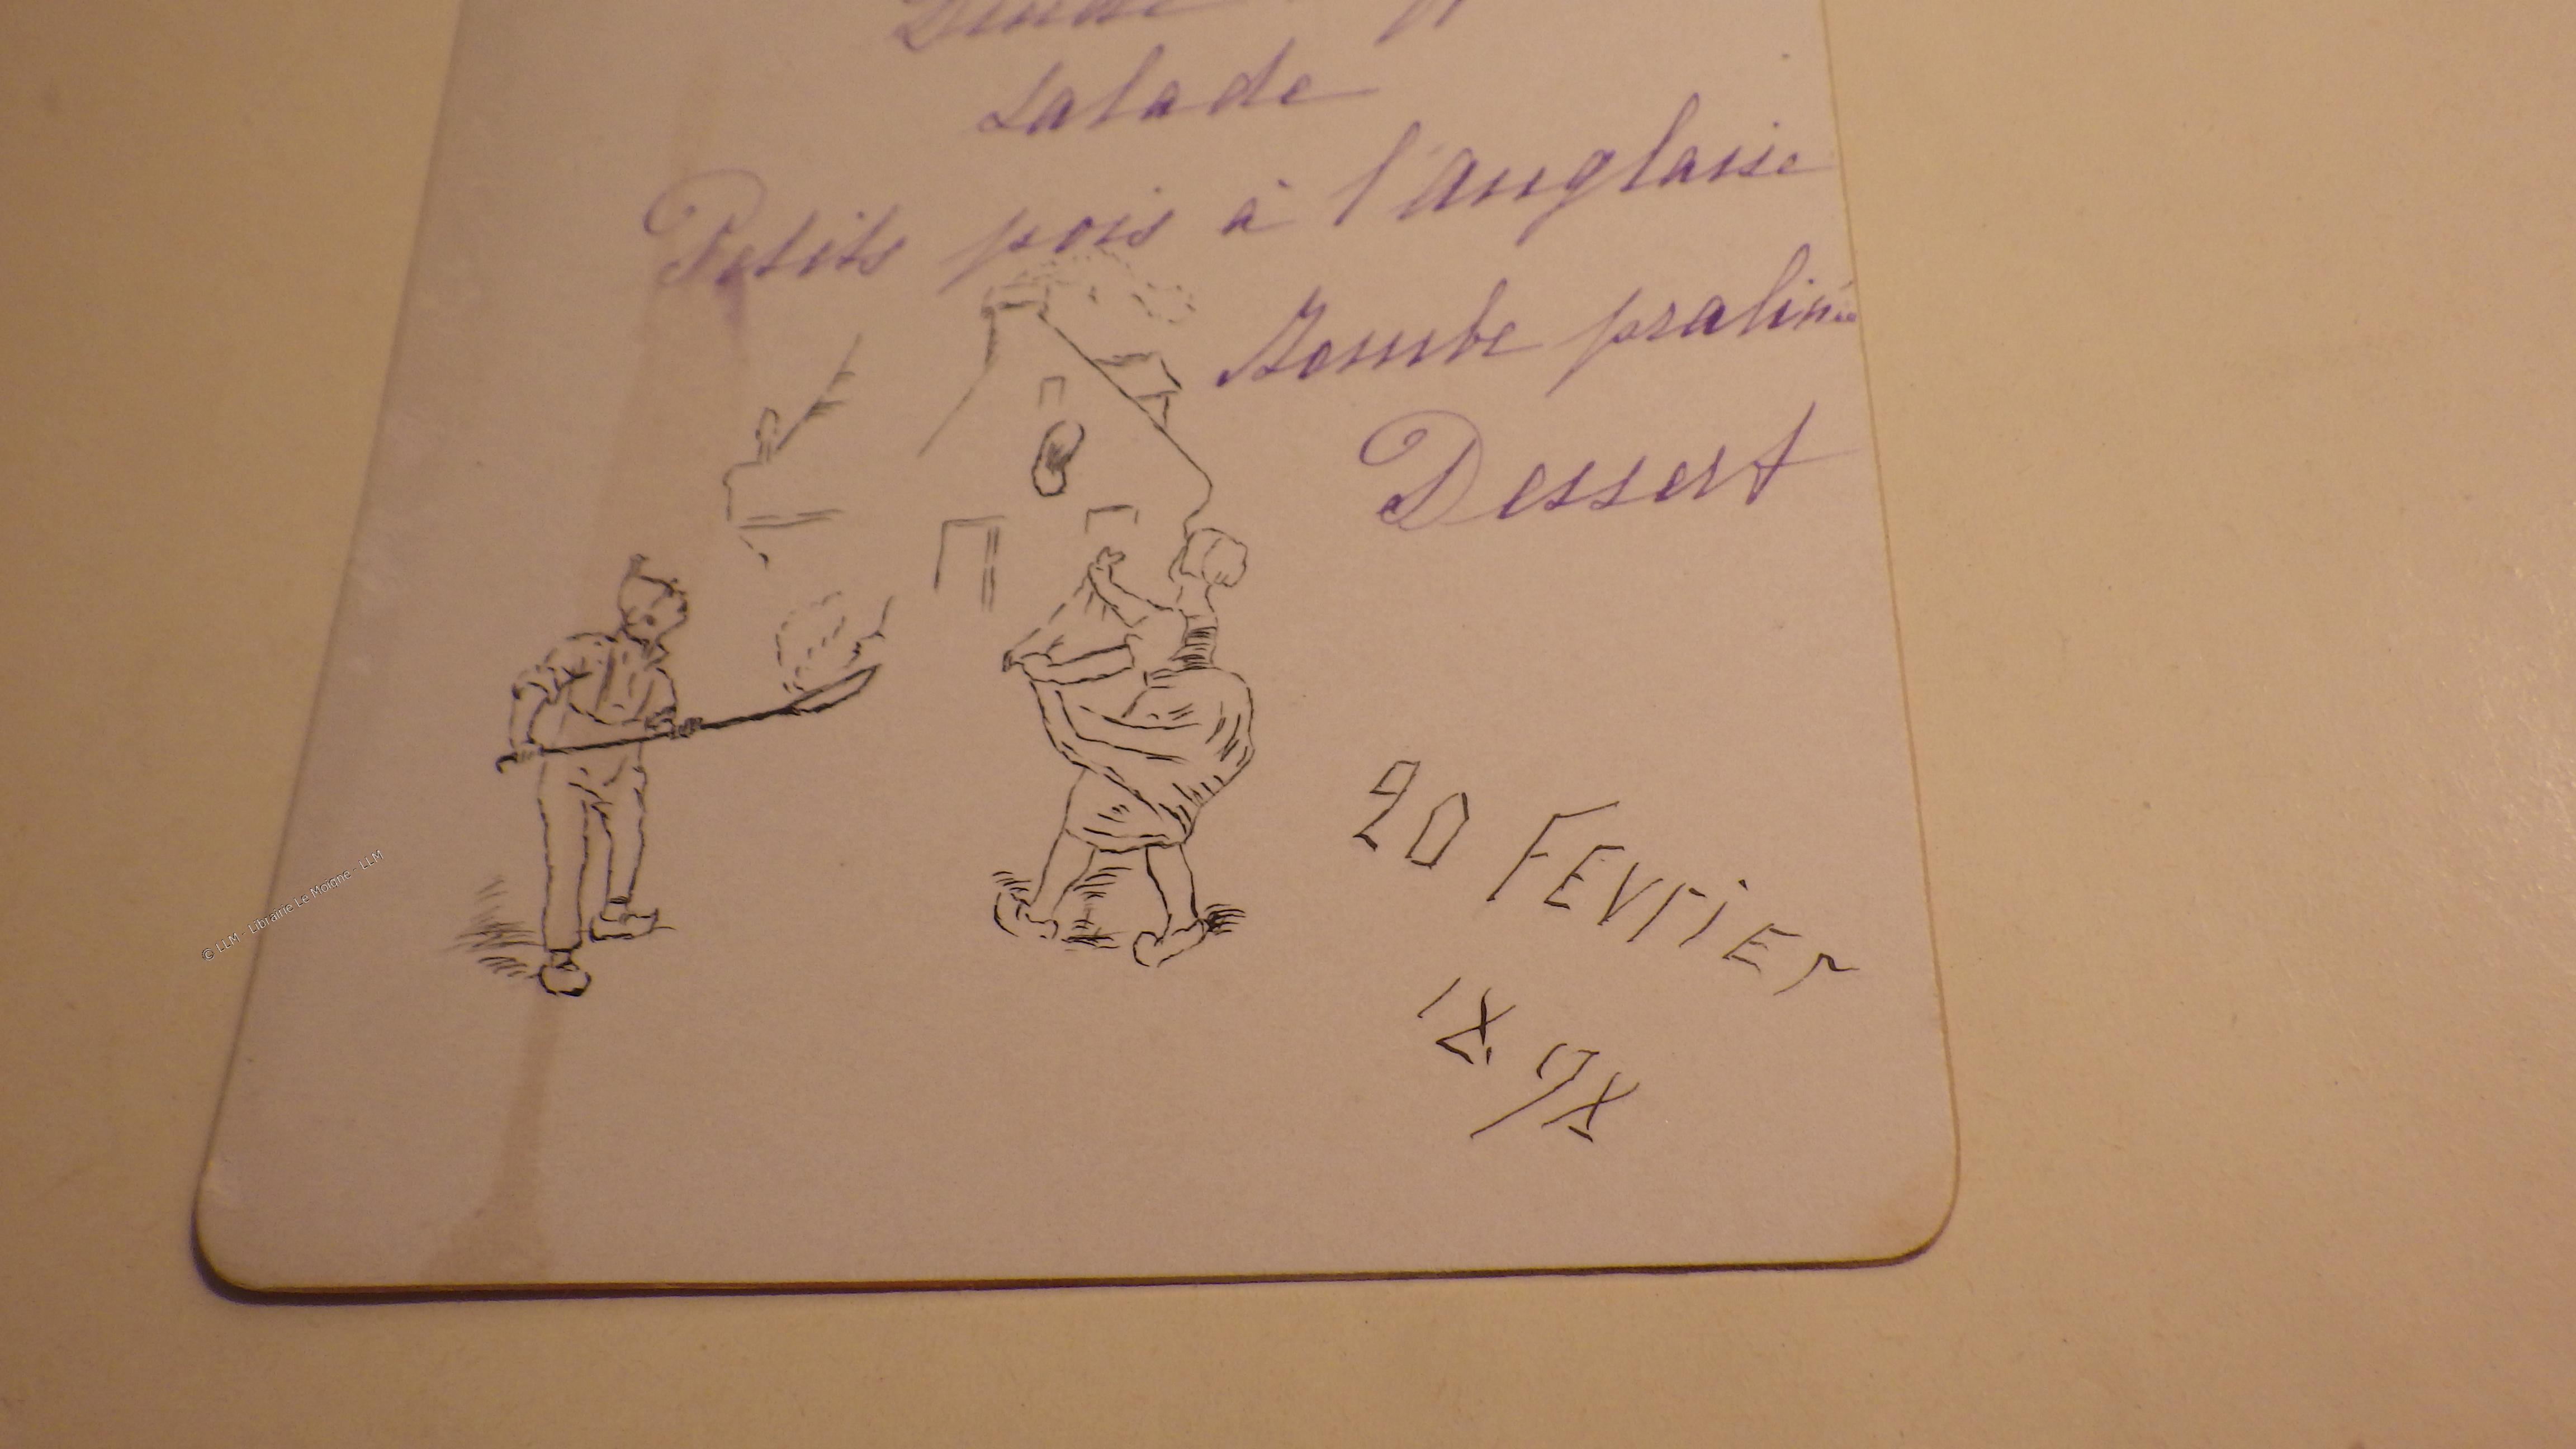 Salade
Petits pois à l'Anglaise
Bombe pralinée
Dessert
20 FEVriEr
1898
© LLM - Librairie Le Moigne - LLM